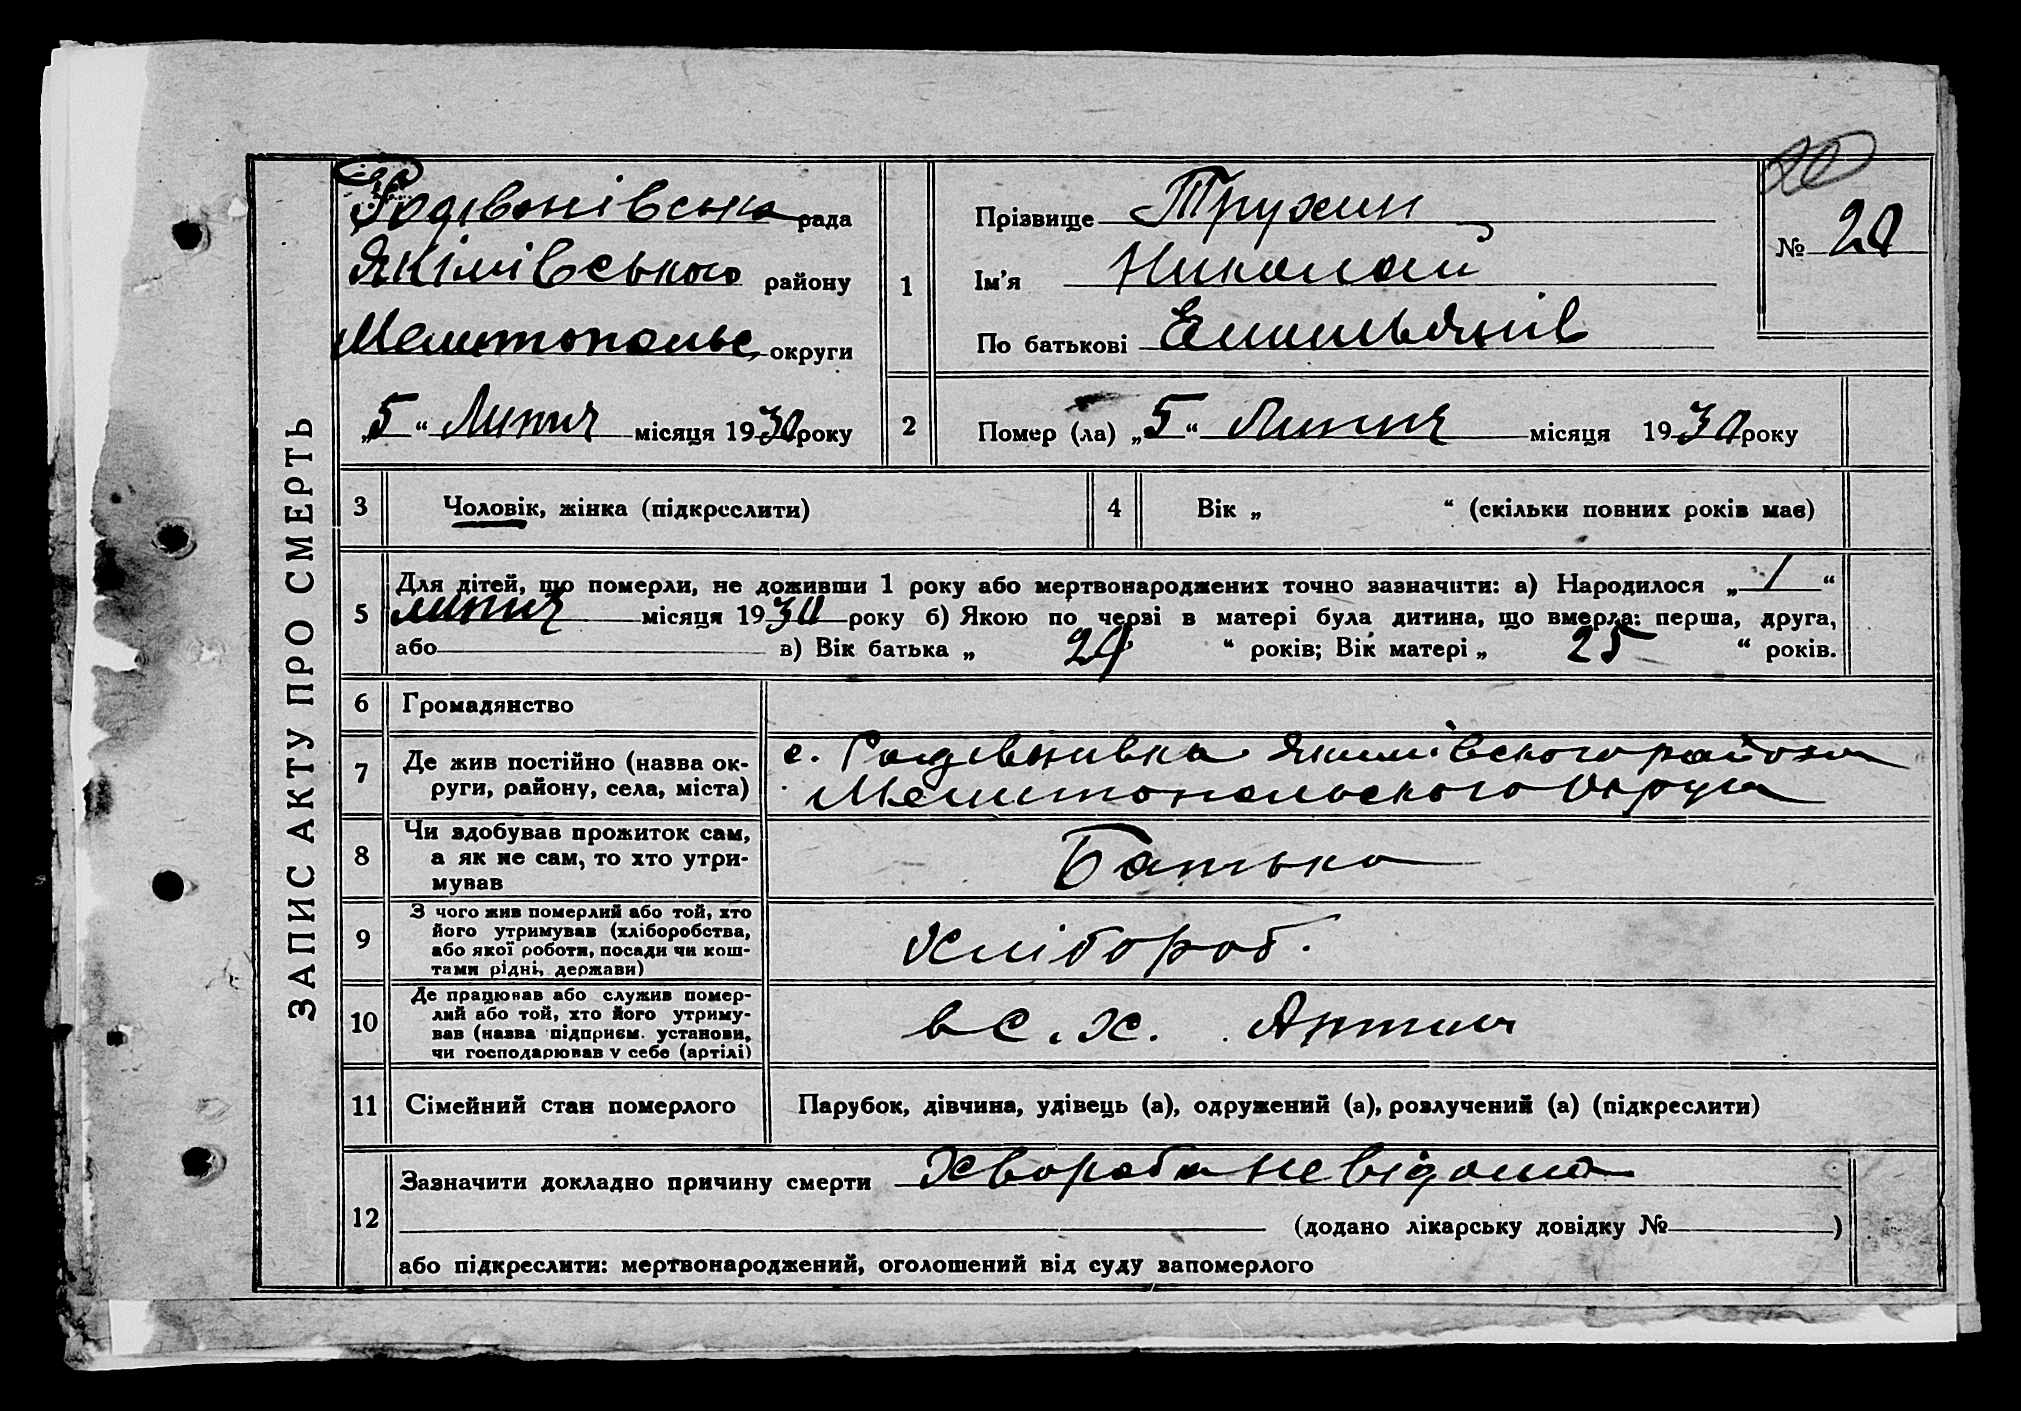 ЗАПИС АКТУ ПРО СМЕРТЬ
20
Родівонівська рада
Якімівського району
Мелитопольс округи
„5“ Липня місяця 1930 року
1
Прізвище Трухин
Ім'я Николай
По батькові Емильянів
№ 20
2
Помер (ла) „5“ Липня місяця 1930 року
3
Чоловік, жінка (підкреслити)
4
Вік „ “ (скільки повних років має)
5
Для дітей, що померли, не доживши 1 року або мертвонароджених точно зазначити: а) Народилося „1“
липня місяця 1930 року б) Якою по черві в матері була дитина, що вмерла: перша, друга,
або в) Вік батька „ 24 “ років; Вік матері „ 25 “ років.
6
Громадянство
7
Де жив постійно (назва ок-
руги, району, села, міста)
с. Родівонивка Якимівского району
Мелитопольского Округа
8
Чи здобував прожиток сам,
а як не сам, то хто утри-
мував
Батько
9
З чого жив померлий або той, хто
його утримував (хліборобства,
або якої роботи, посади чи кош-
тами рідні, держави)
Хлібороб.
10
Де працював або служив помер-
лий або той, хто його утриму-
вав (назва підприєм. установи,
чи господарював у себе (артілі)
в с. х. Артили
11
Сімейний стан померлого
Парубок, дівчина, удівець (а), одружений (а), розлучений (а) (підкреслити)
12
Зазначити докладно причину смерти Хвороба невідома
(додано лікарську довідку № )
або підкреслити: мертвонароджений, оголошений від суду запомерлого